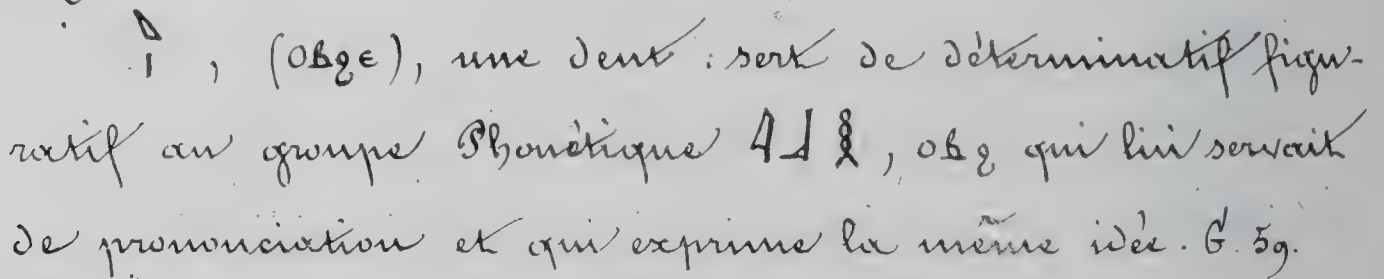 , (ⲟⲃϩⲉ), une dent : sert de déterminatif figu-
ratif au groupe Phonétique 𓇋𓃀𓎛, ⲟⲃϩ qui lui servait
de prononciation et qui exprime la même idée. G. 59.